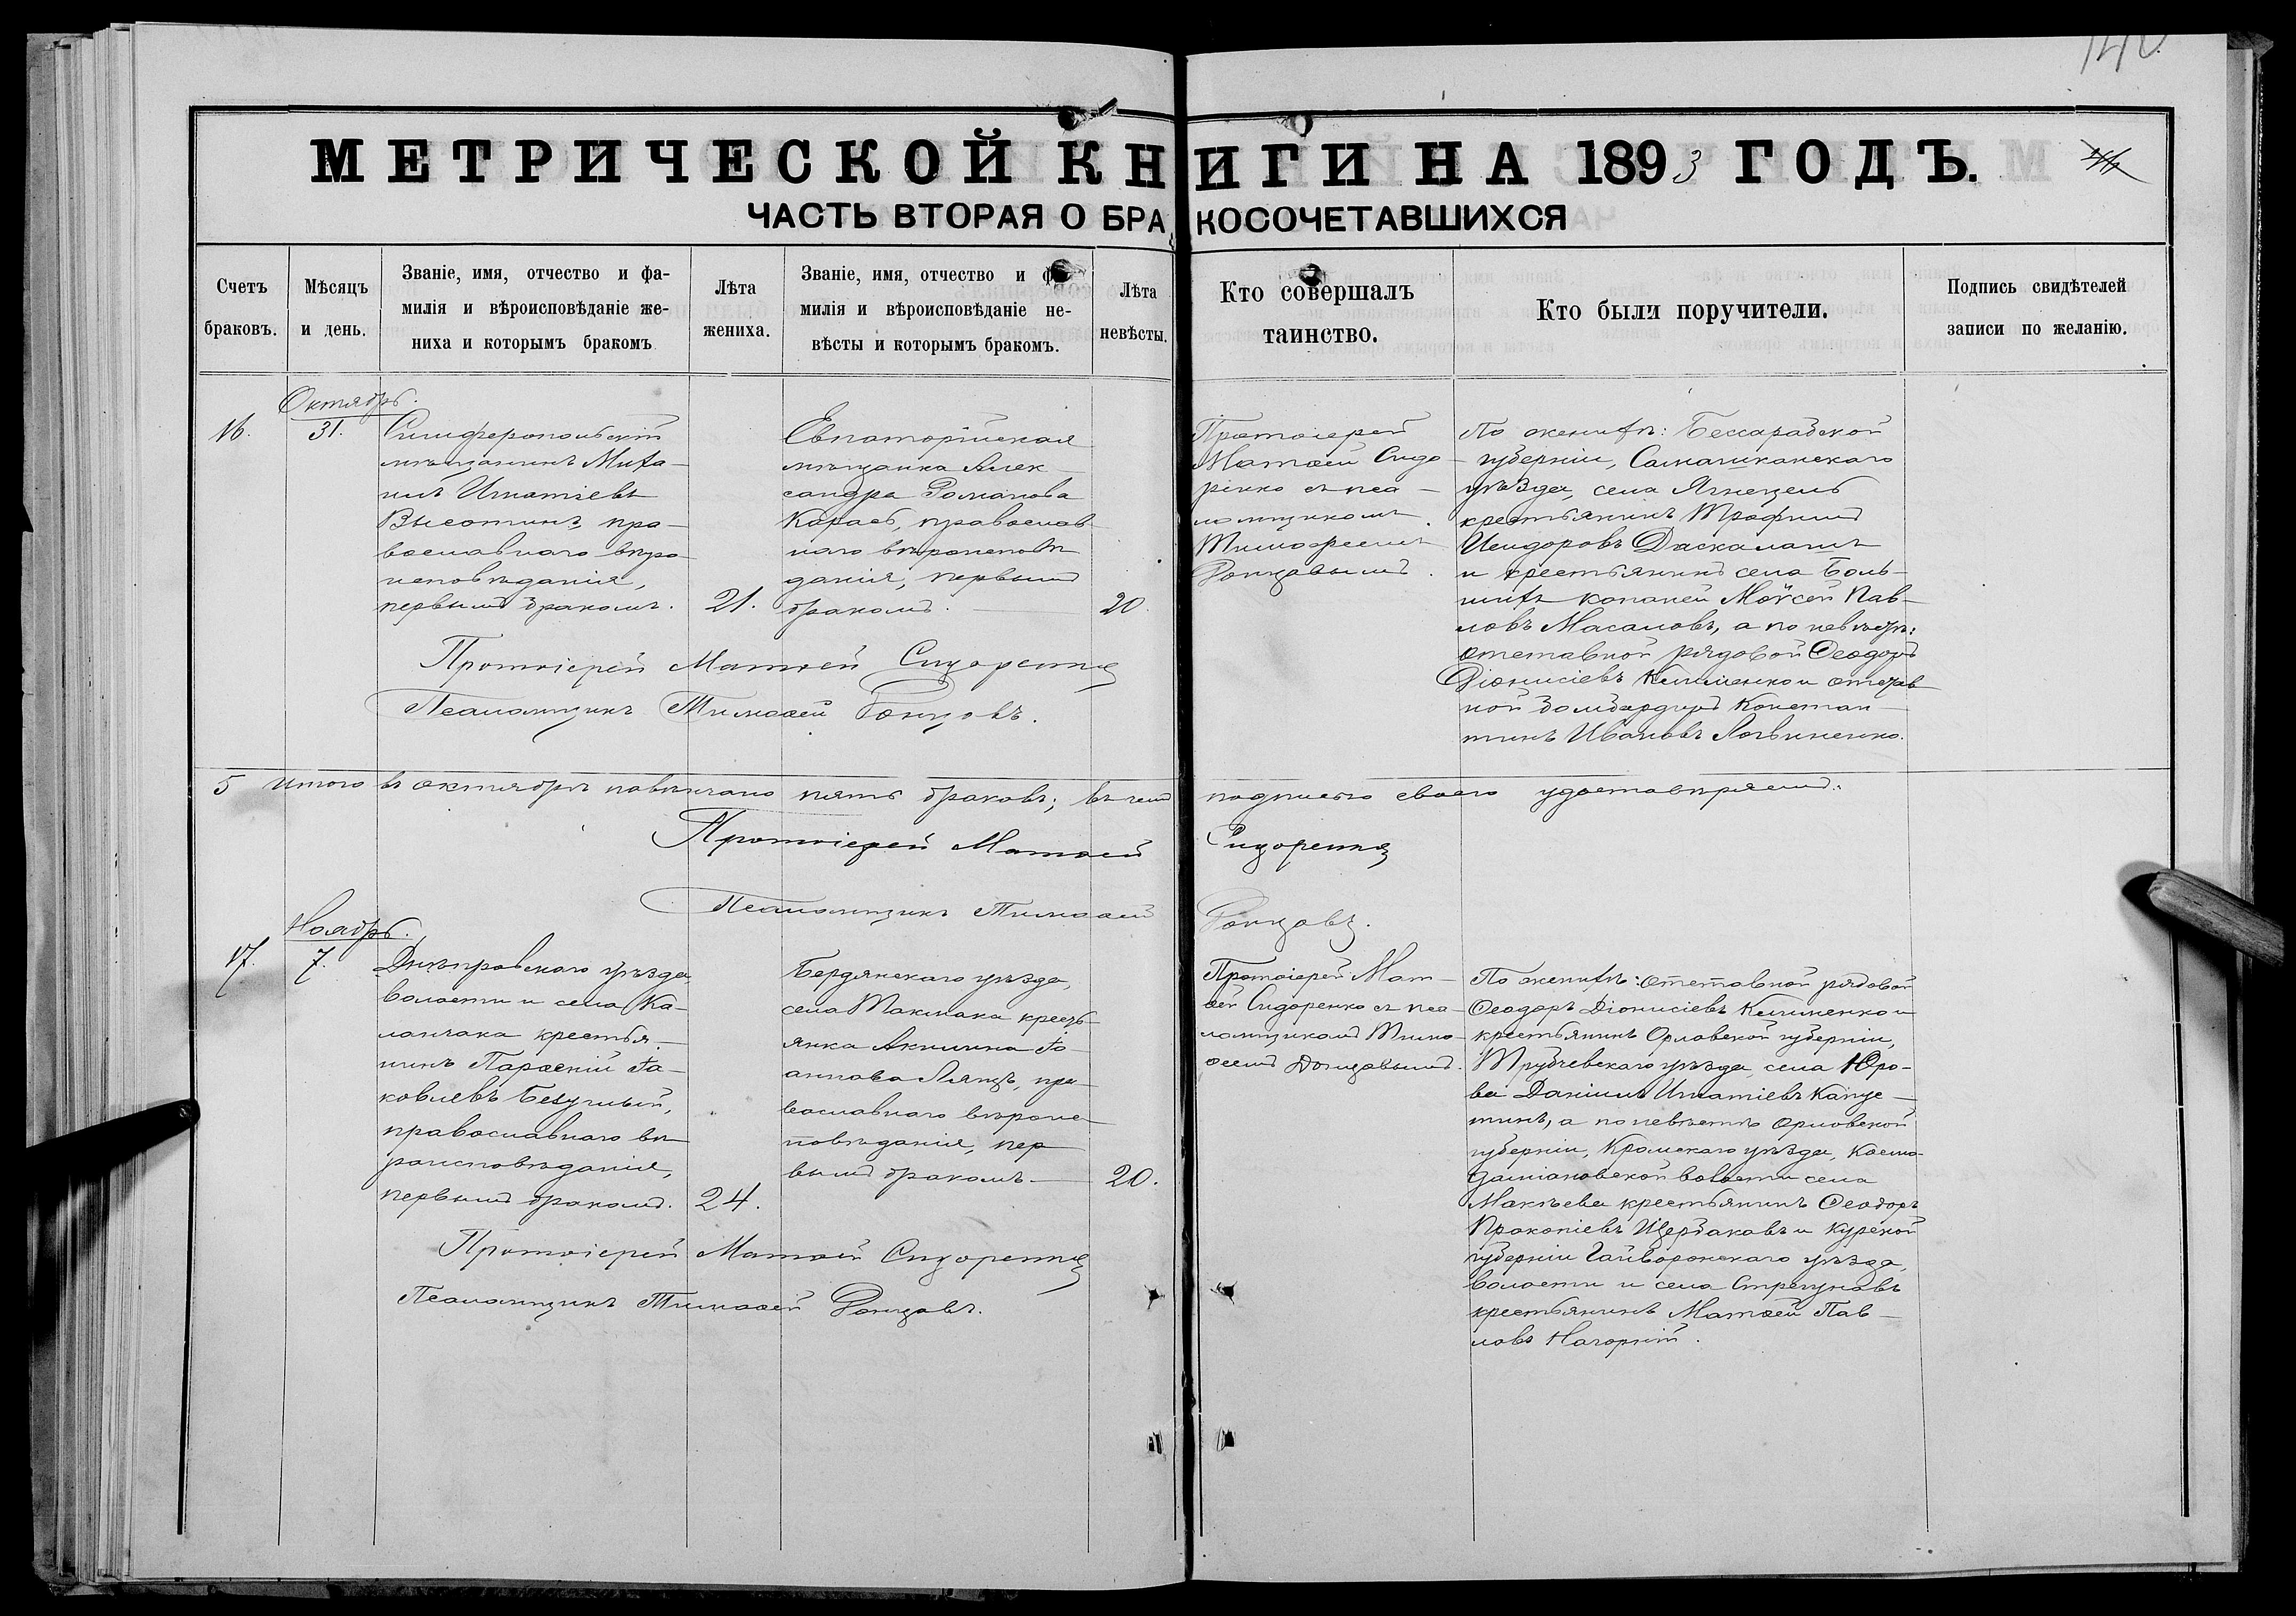 МЕТРИЧЕСКОЙ КНИГИ НА 1893 ГОДЪ.
ЧАСТЬ ВТОРАЯ О БРАКОСОЧЕТАВШИХСЯ
Счетъ
браковъ.
Мѣсяцъ
и день.
Званіе, имя, отчество и фа-
милія и вѣроисповѣданіе же-
ниха и которымъ бракомъ
Лѣта
жениха.
Званіе, имя, отчество и фа-
милія и вѣроисповѣданіе не-
вѣсты и которымъ бракомъ.
Лѣта
невѣсты.
Кто совершалъ
таинство.
Кто были поручители.
Подпись свидѣтелей
записи по желанію.
16.
Октябрь.
31.
Симферопольскій
мѣщанинъ Миха-
илъ Игнатіевъ
Высотинъ, пра-
вославнаго вѣро
исповѣданія,
первымъ бракомъ.
21.
Евпаторійская
мѣщанка Алек-
сандра Романова
Карась, православ
наго вѣроисповѣ
данія, первымъ
бракомъ.
20.
Протоіерей
Матѳей Сидо
ренко съ пса-
ломщикомъ
Тимоѳеемъ
По женихѣ: Бессарабской
губерніи,
уѣзда, села
крестьянинъ Трофимъ
Исидоровъ
и крестьянинъ села Боль-
шихъ копаней Моѵсей Пав-
ловъ Масаловъ, а по невѣстѣ:
отставной рядовой Ѳеодоръ
Діонисіевъ Клименко и отстав
ной бомбардиръ Констан-
тинъ Ивановъ Логвиненко.
Протоіерей Матѳей Сидоренко
Псаломщикъ Тимоѳей
5 Итого въ октябрѣ повѣнчано пять браковъ; въ чемъ подписью своею удостовѣряемъ:
Протоіерей Матѳей Сидоренко
Псаломщикъ Тимоѳей
17.
Ноябрь.
7.
Днѣпровскаго уѣзда,
волости и села Ка-
ланчака крестья-
нинъ Парѳеній Іа-
ковлевъ
православнаго вѣ
роисповѣданія,
первымъ бракомъ.
24.
Бердянскаго уѣзда,
села Токмака кресть
янка Акилина Іо-
аннова Лянъ, пра-
вославнаго вѣроис
повѣданія, пер
вымъ бракомъ.
20.
Протоіерей Мат-
ѳей Сидоренко съ пса-
ломщикомъ Тимо-
ѳеемъ
По женихѣ: отставной рядовой
Ѳеодоръ Діонисіевъ Клименко и
крестьянинъ Орловской губерніи,
Трубчевскаго уѣзда, села Юро-
ва Даніилъ Игнатіевъ
а по невѣстѣ Орловской
губерніи, Кромскаго уѣзда, Косьмо-
даміановской волости села
Макѣева крестьянинъ Ѳеодоръ
Прокопіевъ Щербаковъ и Курской
губерніи Гайворонскаго уѣзда,
волости и села Стрегуновъ
крестьянинъ Матѳей Пав-
ловъ Нагорній.
Протоіерей Матѳей Сидоренко
Псаломщикъ Тимоѳей